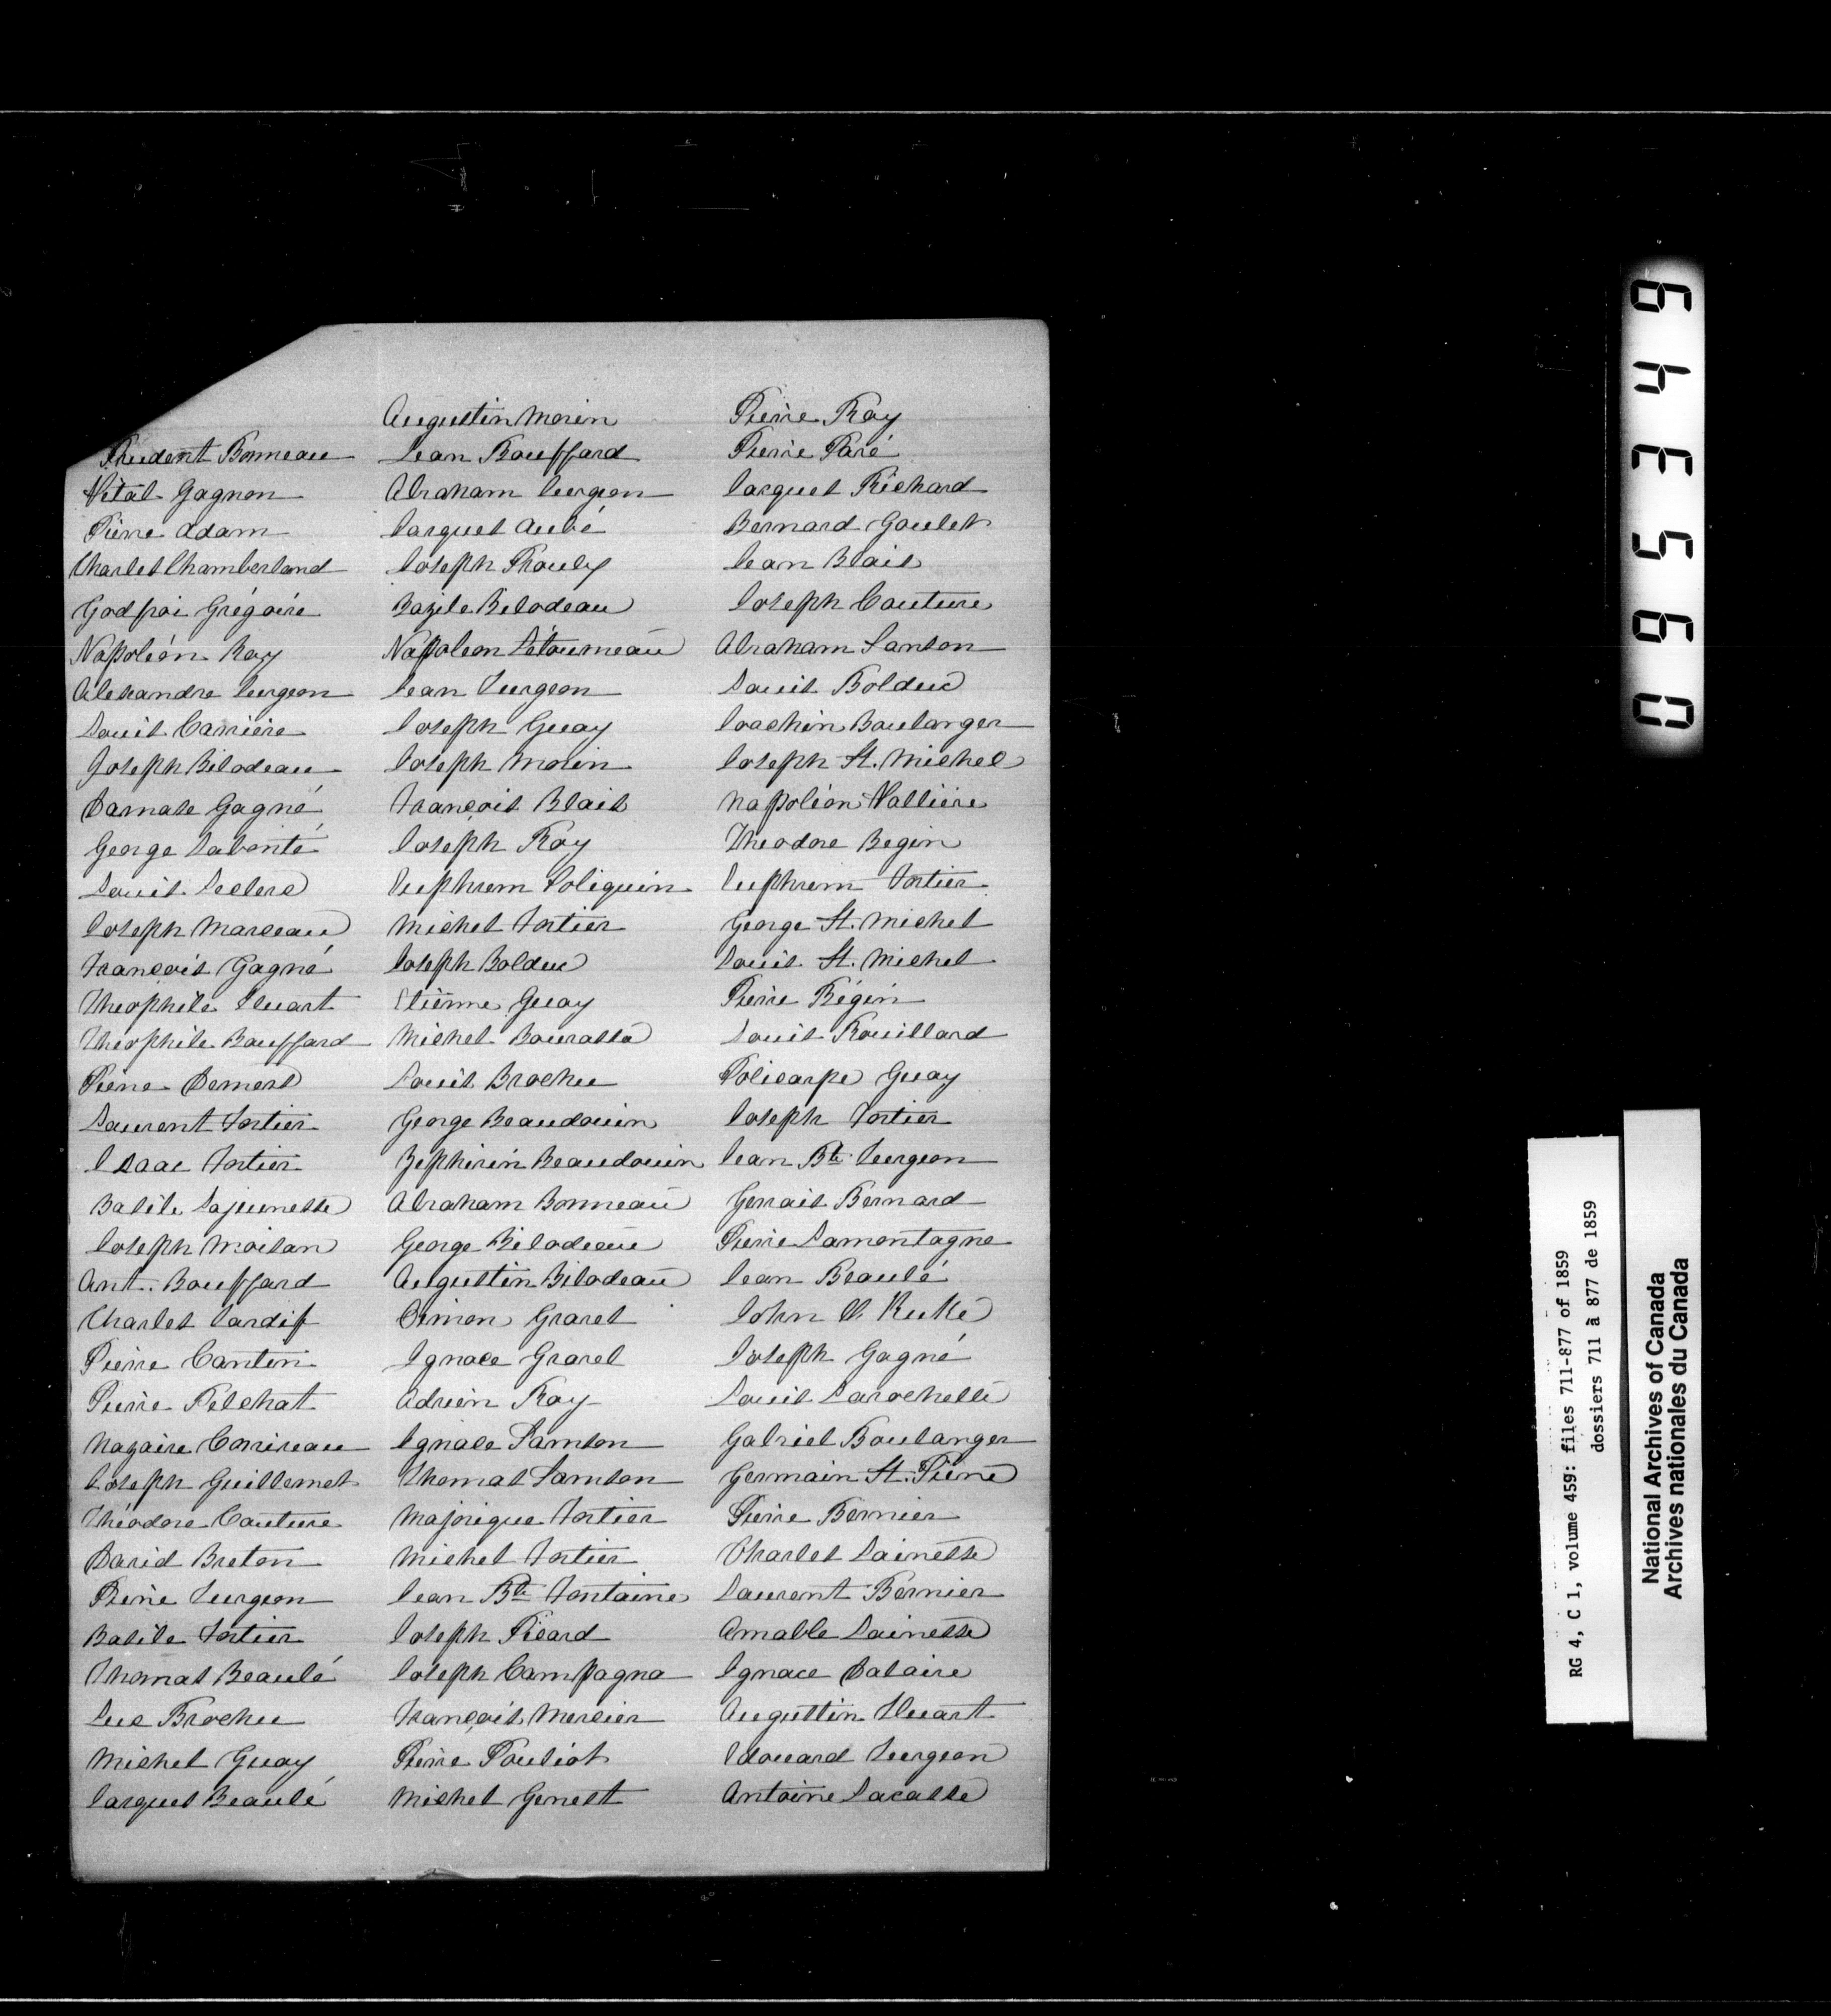 Augustin Morin Pierre Roy
Prudent Bonneau Jean Bouffard Pierre Paré
Vital Gagnon Abraham Turgeon Jacques Richard
Pierre Adam Jacques Aubé Bernard Goulet
Charles Chamberland Joseph Prouly Jean Blais
Godfroi Grégoire Bazile Bilodeau Joseph Couture
Napoléon Roy Napoleon Létourneau Abraham Samson
Alexandre Turgeon Jean Turgeon Louis Bolduc
Louis Carrière Joseph Guay Joachin Boulanger
Joseph Bilodeau Joseph Morin Joseph St. Michel
Damase Gagné François Blais Napoléon Vallière
George Labonté Joseph Roy Theodore Begin
Louis Leclerc Euphrem Poliquin Euphrem Fortier
Joseph Marceau Michel Fortier George St. Michel
François Gagné Joseph Bolduc Louis St. Michel
Theophile Huart Etienne Guay Pierre Bégin
Théophile Bouffard Michel Bourassa Louis Rouillard
Pierre Demers Louis Brochu Policarpe Guay
Laurent Fortier George Beaudouin Joseph Fortier
Isaac Fortier Zephirin Beaudouin Jean Bte Turgeon
Basile Lajeunesse Abraham Bonneau Gervais Bernard
Joseph Moisan George Bilodeau Pierre Lamontagne
Ant. Bouffard Augustin Bilodeau Jean Beaulé
Charles Tardif Simon Gravel John
Pierre Cantin Ignace Gravel Joseph Gagné
Pierre Pelchat Adrien Roy Louis Larochelle
Nazaire Corriveau Ignace Samson Gabriel Boulanger
Joseph Guillemet Thomas Samson Germain St. Pierre
Théodore Couture Majorique Fortier Pierre Bernier
David Breton Michel Fortier Charles Lainesse
Pierre Turgeon Jean Bte Fontaine Laurent Bernier
Basile Fortier Joseph Picard Amable Lainesse
Thomas Beaulé Joseph Campagna Ignace Dalaire
Luc Brochu François Mercier Augustin Huart
Michel Guay Pierre Pouliot Edouard Turgeon
Jacques Beaulé Michel Genest Antoine Lacasse
095349
RG 4, C 1, volume 459: files 711-877 of 1859
dossiers 711 à 877 de 1859
National Archives of Canada
Archives nationales du Canada